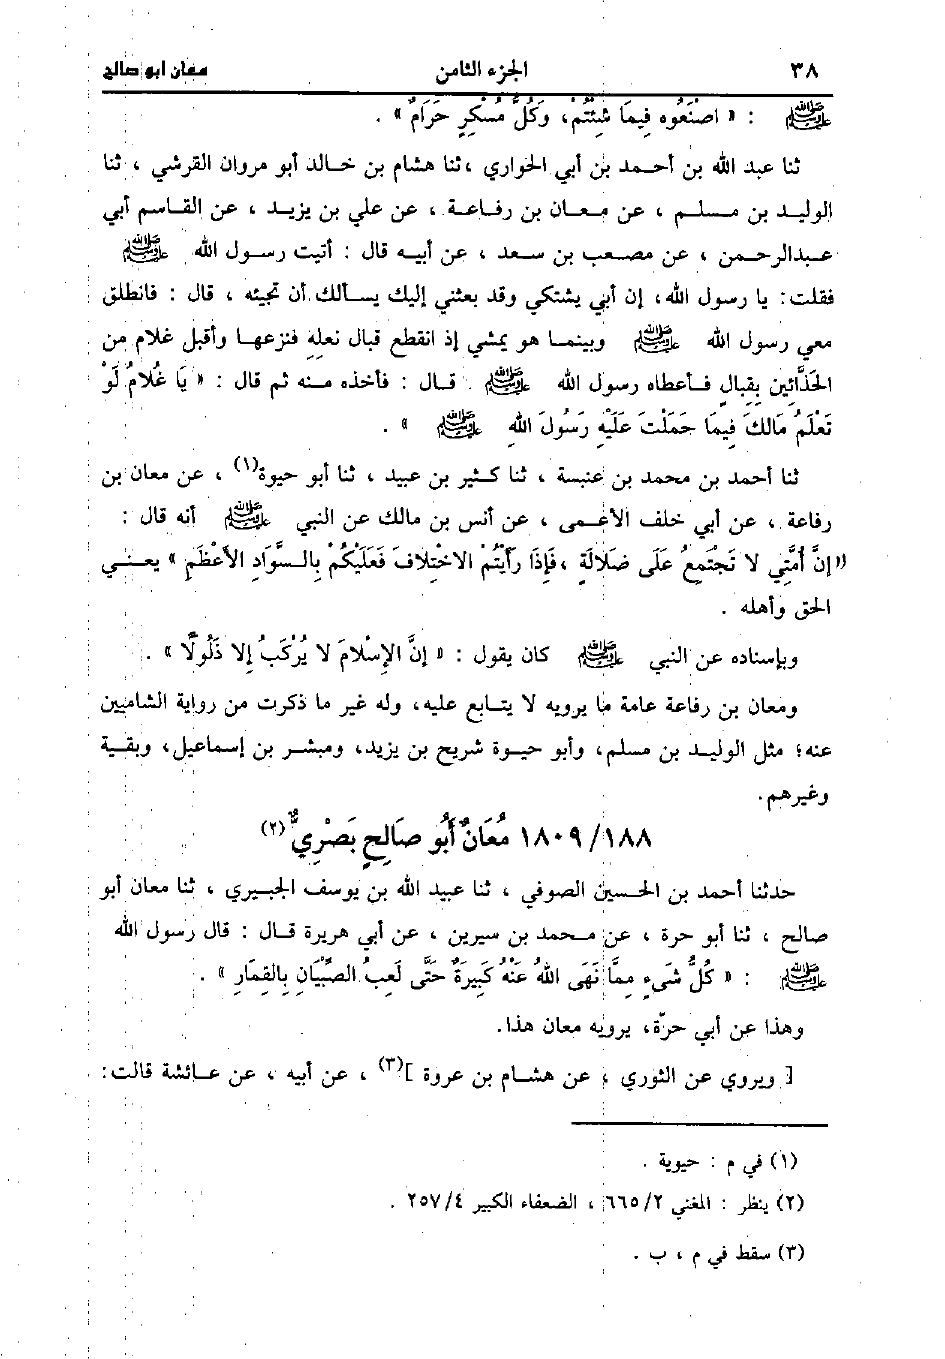 ٣٨ الجزء الثامن معان ابو صالح
ﷺ : « اصْنَعُوه فِيمَا شِئْتُمْ، وَكُلُّ مُسْكِرٍ حَرَامٌ » .
ثنا عبد الله بن أحمد بن أبي الحواري ، ثنا هشام بن خالد أبو مروان القرشي ، ثنا
الوليد بن مسلم ، عن معان بن رفاعة ، عن علي بن يزيد ، عن القاسم أبي
عبدالرحمن ، عن مصعب بن سعد ، عن أبيه قال : أتيت رسول الله ﷺ
فقلت: يا رسول الله، إن أبي يشتكي وقد بعثني إليك يسألك أن تجيئه ، قال : فانطلق
معي رسول الله ﷺ وبينما هو يمشي إذ انقطع قبال نعله فنزعها وأقبل غلام من
الحَذَّائين بِقبالٍ فأعطاه رسول الله ﷺ . قال : فأخذه منه ثم قال : « يَا غُلامُ لَوْ
تَعْلَمُ مَالكَ فِيمَا حَمَلْتَ عَلَيْهِ رَسُولَ اللهِ ﷺ » .
ثنا أحمد بن محمد بن عنبسة ، ثنا كثير بن عبيد ، ثنا أبو حيوة(١) ، عن معان بن
رفاعة ، عن أبي خلف الأعمى ، عن أنس بن مالك عن النبي ﷺ أنه قال :
«إنَّ أُمَّتِي لا تَجْتَمِعُ عَلَى ضَلالَةٍ ، فَإِذَا رَأَيْتُمْ الاخْتِلافَ فَعَلَيْكُمْ بِالسَّوَادِ الأعْظَمِ » يعني
الحق وأهله .
وبإسناده عن النبي ﷺ كان يقول : « إنَّ الإسْلامَ لا يُرْكَبُ إلا ذَلُولًا » .
ومعان بن رفاعة عامة ما يرويه لا يتابع عليه، وله غير ما ذكرت من رواية الشاميين
عنه؛ مثل الوليد بن مسلم، وأبو حيوة شريح بن يزيد، ومبشر بن إسماعيل، وبقية
وغيرهم.
١٨٠٩/١٨٨ مُعَانٌ أَبُو صَالحٍ بَصْرِيٌّ(٢)
حدثنا أحمد بن الحسين الصوفي ، ثنا عبيد الله بن يوسف الجبيري ، ثنا معان أبو
صالح ، ثنا أبو حرة ، عن محمد بن سيرين ، عن أبي هريرة قال : قال رسول الله
ﷺ : « كُلُّ شَيءٍ مِمَّا نَهَى اللهُ عَنْهُ كَبِيرَةٌ حَتَّى لَعِبُ الصِّبْيَانِ بِالقِمَارِ » .
وهذا عن أبي حرّة، يرويه معان هذا.
[ ويروي عن الثوري ، عن هشام بن عروة ](٣) ، عن أبيه ، عن عائشة قالت:
(١) في م : حيوية .
(٢) ينظر : المغني ٦٦٥/٢ ، الضعفاء الكبير ٢٥٧/٤ .
(٣) سقط في م ، ب .